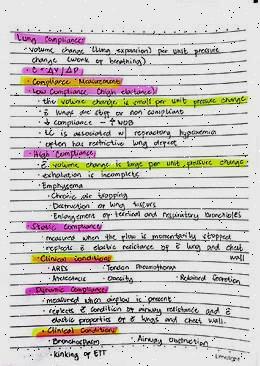 Lung Compliance
• volume change (lung expansion) per unit pressure
change (work of breathing)
• C = ΔV / ΔP
• Compliance Measurement
• Low Compliance (high elastance)
• the volume change is small per unit pressure change
• lungs are stiff or non compliant
• ↓ compliance = ↑ WOB
• LC is associated w/ refractory hypoxemia
• often has restrictive lung
• High Compliance
• volume change is large per unit pressure change
• exhalation is incomplete
• Emphysema
• Chronic air trapping
• Destruction of lung tissues
• Enlargement of terminal and respiratory bronchioles
• Static Compliance
• measured when the flow is momentarily stopped
• reflects elastic resistance of lung and chest
wall
• Clinical Conditions
• ARDS • Tension Pneumothorax
• Atelectasis • Obesity • Retained Secretion
• Dynamic Compliance
• measured when airflow is present
• reflects condition of airway resistance and
elastic properties of lungs and chest wall
• Clinical Conditions
• Bronchospasm • Airway obstruction
• kinking of ETT